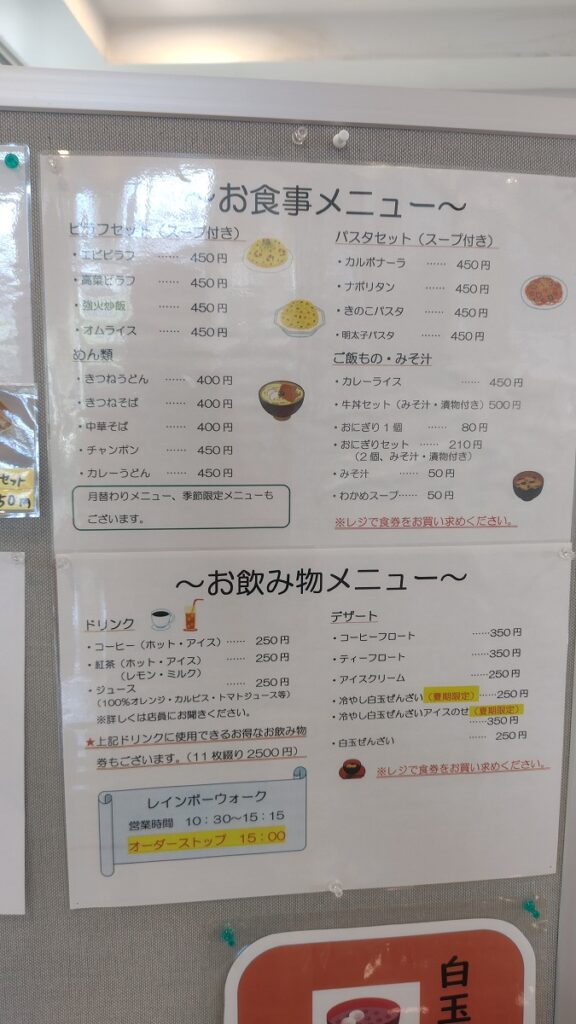 ～お食事メニュー～
ピラフセット（スープ付き）
・エビピラフ …… 450円
・高菜ピラフ …… 450円
・強火炒飯 …… 450円
・オムライス …… 450円
めん類
・きつねうどん …… 400円
・きつねそば …… 400円
・中華そば …… 400円
・チャンポン …… 450円
・カレーうどん …… 450円
月替わりメニュー、季節限定メニューも
ございます。
パスタセット（スープ付き）
・カルボナーラ …… 450円
・ナポリタン …… 450円
・きのこパスタ …… 450円
・明太子パスタ …… 450円
ご飯もの・みそ汁
・カレーライス …… 450円
・牛丼セット（みそ汁・漬物付き）500円
・おにぎり1個 …… 80円
・おにぎりセット …… 210円
（2個、みそ汁・漬物付き）
・みそ汁 …… 50円
・わかめスープ…… 50円
※レジで食券をお買い求めください。
～お飲み物メニュー～
ドリンク
・コーヒー（ホット・アイス）…… 250円
・紅茶（ホット・アイス） …… 250円
（レモン・ミルク）
・ジュース …… 250円
（100％オレンジ・カルピス・トマトジュース等）
※詳しくは店員にお聞きください。
★上記ドリンクに使用できるお得なお飲み物
券もございます。（11枚綴り2500円）
レインボーウォーク
営業時間 10：30～15：15
オーダーストップ 15：00
デザート
・コーヒーフロート ……350円
・ティーフロート ……350円
・アイスクリーム ……250円
・冷やし白玉ぜんざい（夏期限定）……250円
・冷やし白玉ぜんざいアイスのせ（夏期限定）
……350円
・白玉ぜんざい …… 250円
※レジで食券をお買い求めください。
セット
50円
白玉